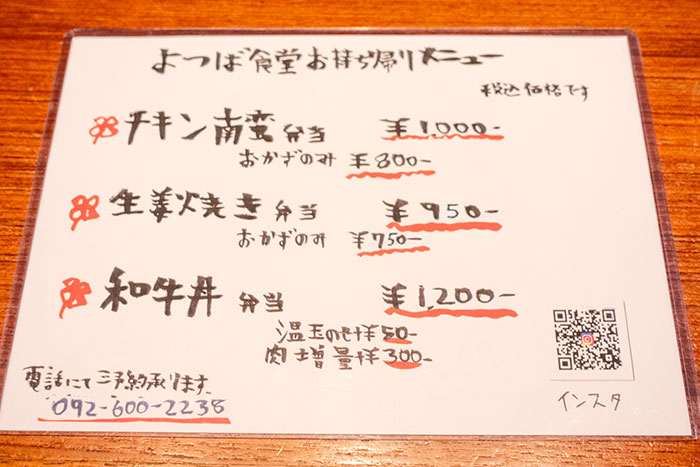 よつば食堂お持ち帰りメニュー
税込価格です
チキン南蛮弁当 ¥1,000-
おかずのみ ¥800-
生姜焼き弁当 ¥950-
おかずのみ ¥750-
和牛丼弁当 ¥1,200-
温玉のせ 50-
肉増量 300-
電話にてご予約承ります。
092-600-2238
インスタ